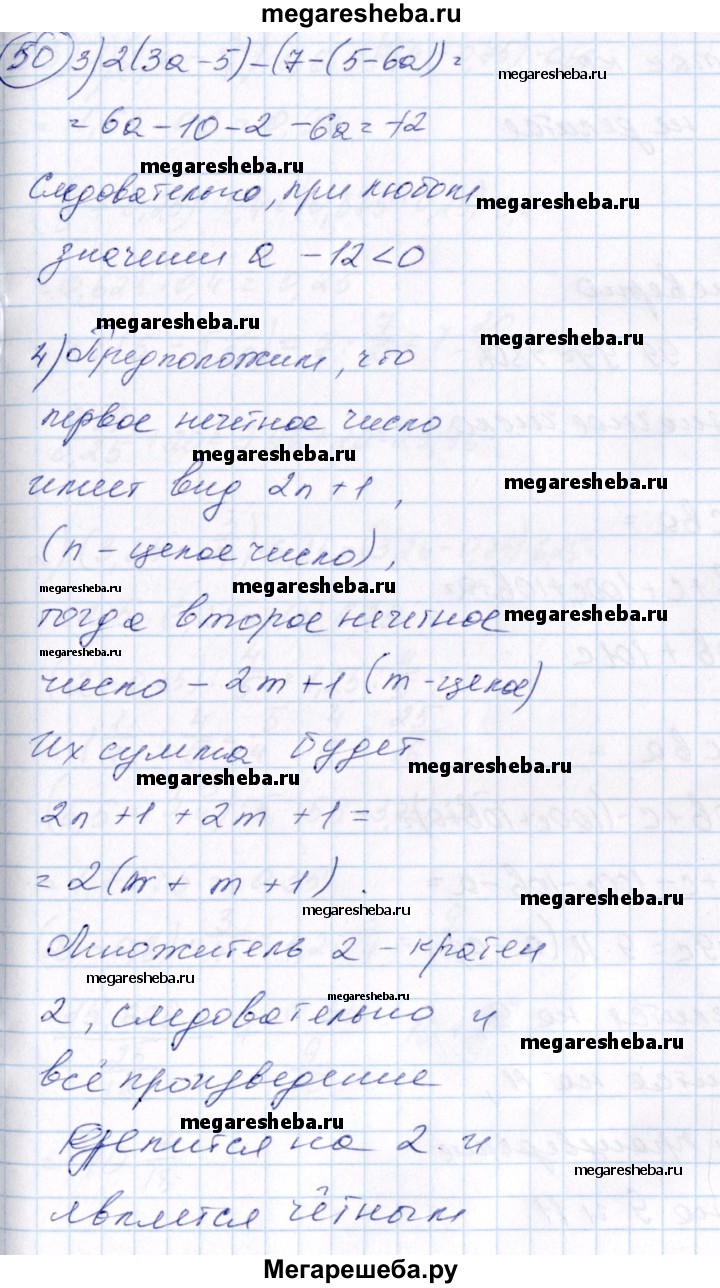 megaresheba.ru
50 3) 2(3a-5)-(7-(5-6a))=
megaresheba.ru
=6a-10-2-6a=-12
megaresheba.ru
Следовательно, при любом
megaresheba.ru
значении a -12<0
megaresheba.ru
megaresheba.ru
4) Предположим, что
первое нечётное число
megaresheba.ru
имеет вид 2n+1,
megaresheba.ru
(n-целое число),
megaresheba.ru
megaresheba.ru
тогда второе нечетное
megaresheba.ru
megaresheba.ru
число - 2m+1 (m-целое)
Их сумма будет
megaresheba.ru
megaresheba.ru
2n+1+2m+1=
=2(m+m+1).
megaresheba.ru
megaresheba.ru
Множитель 2 - кратен
megaresheba.ru
megaresheba.ru
2, следовательно и
megaresheba.ru
всё произведение
megaresheba.ru
делится на 2 и
megaresheba.ru
является чётным
Мегарешеба.ру